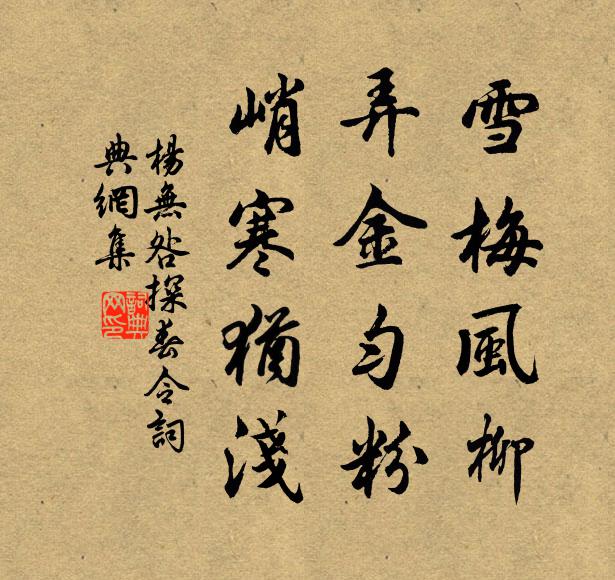 雪梅風柳
弄金勻粉
峭寒猶淺
楊無咎探春令詞
典網集
詞典網印